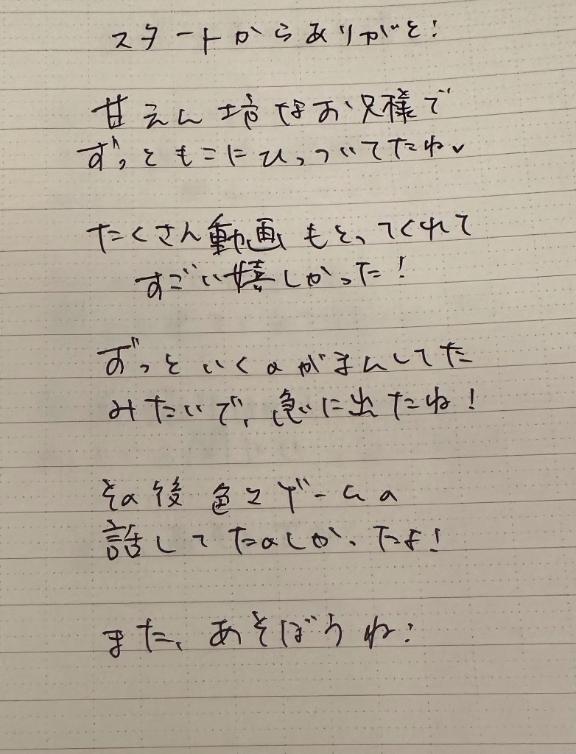 スタートからありがと!
甘えん坊なお兄様で
ずっともこにひっついてたね✓
たくさん動画もとってくれて
すごい嬉しかった!
ずっといくのがまんしてた
みたいで、急に出たね!
その後色々ゲームの
話してたのしかったよ!
また、あそぼうね!